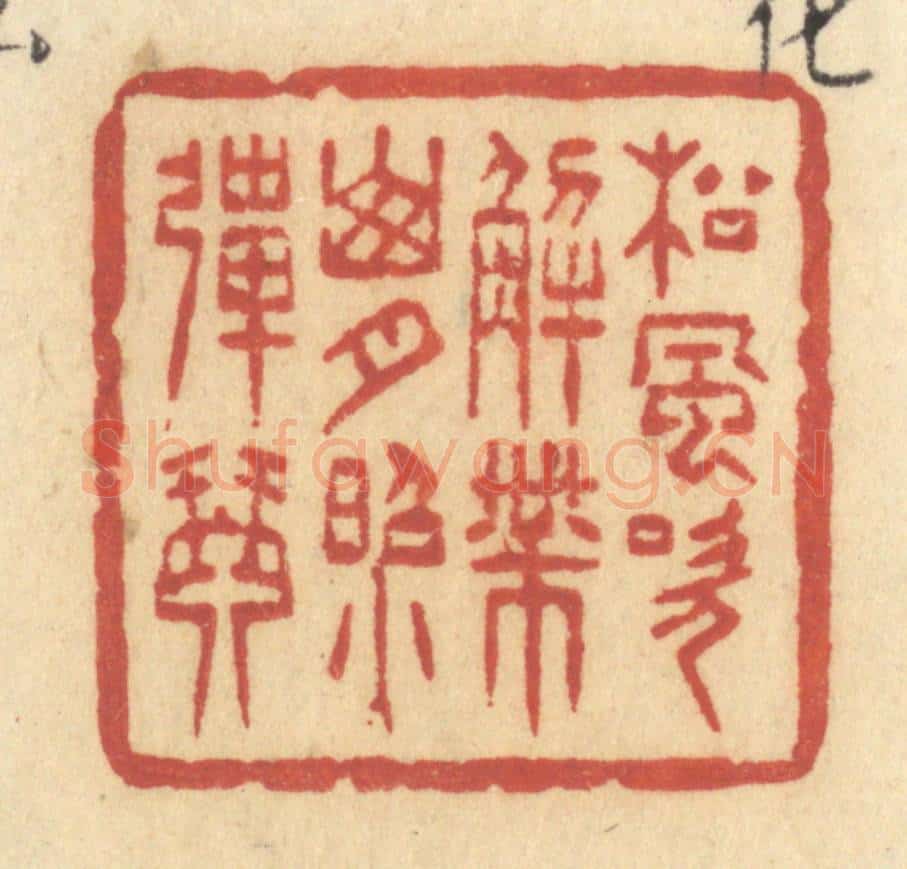 化
松風吹
解帶
山月照
彈琴
Shufawang.CN